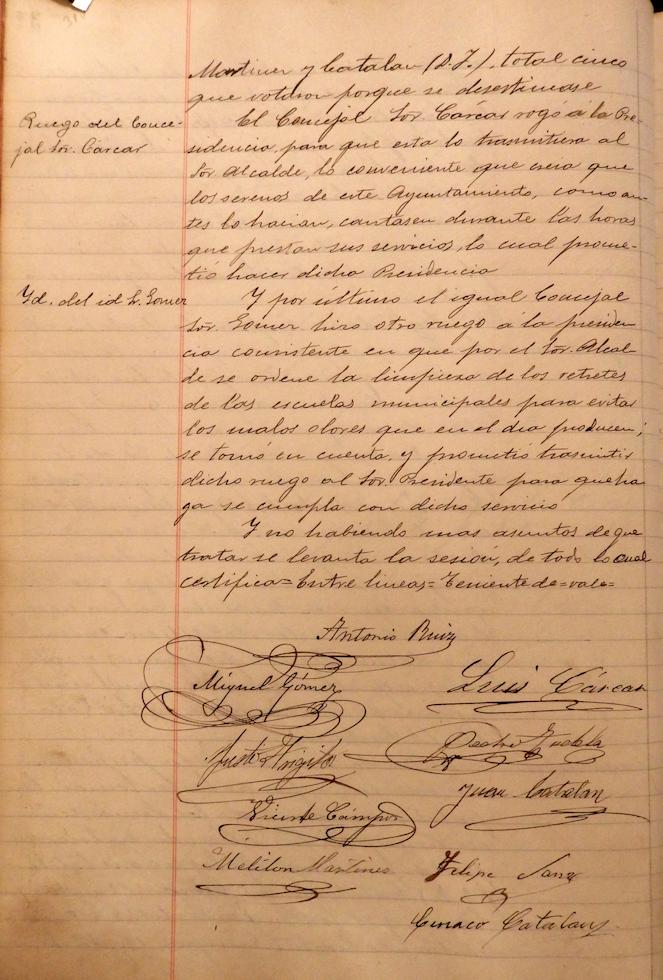 Martinez y Catalan (D. J.), total cinco
que votaron porque se desestimase
Ruego del Conce-
jal Sor. Cárcar
El Concejal Sor. Cárcar rogó á la Pre-
sidencia, para que esta lo trasmitiera al
Sor. Alcalde, lo conveniente que creia que
los serenos de este Ayuntamiento, como an-
tes lo hacian, cantasen durante las horas
que prestan sus servicios, lo cual prome-
tió hacer dicha Presidencia
Yd. del id Sr. Gomez
Y por último el igual Concejal
Sor. Gomez hizo otro ruego á la presiden
cia consistente en que por el Sor. Alcal-
de se ordene la limpieza de los retretes
de las escuelas municipales para evitar
los malos olores que en el dia producen;
se tomó en cuenta, y prometió trasmitir
dicho ruego al Sor. Presidente para que ha
ga se cumpla con dicho servicio
Y no habiendo mas asuntos de que
tratar se levanta la sesión, de todo lo cual
certifica=Entre lineas=Teniente de=vale=
Antonio Ruiz
Miguel Gómez
Luis Cárcar
Justo
Pedro
Juan Catalan
Vicente Cámpos
Meliton Martinez
Felipe Sanz
Ciriaco Catalan